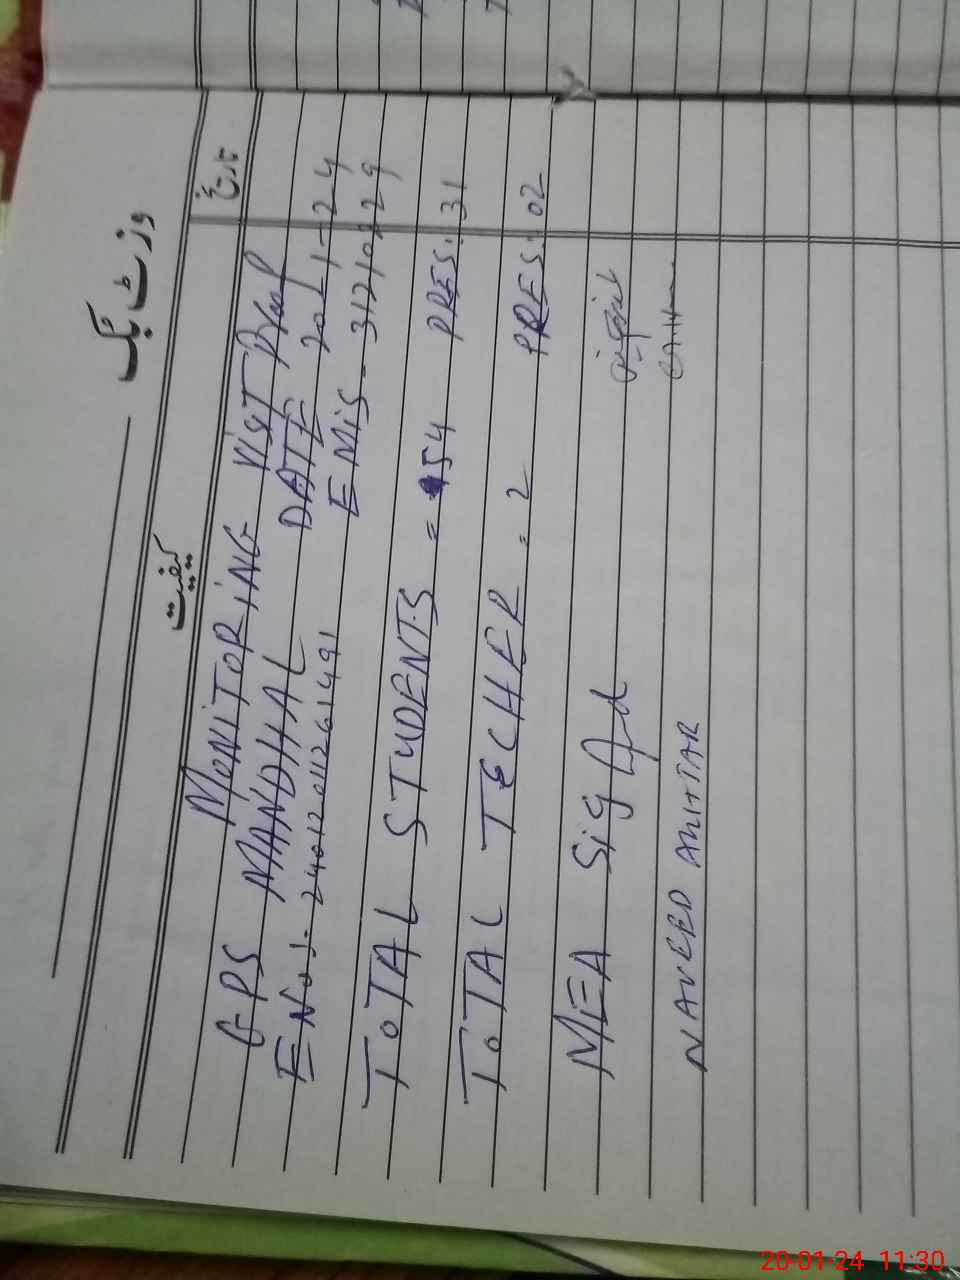 وزٹ بک
کیفیت تاریخ
MONITORING VIST Proof
GPS MANDHAL DATE 20-1-24
ENO:- 24012011261491 EMiS-
ToTAL STUDENTS = 54 PRES: 31
ToTAL TECHER = 2 PRES: 02
MEA Sig
NAVEED AKHTAR
20-01-24 11:30